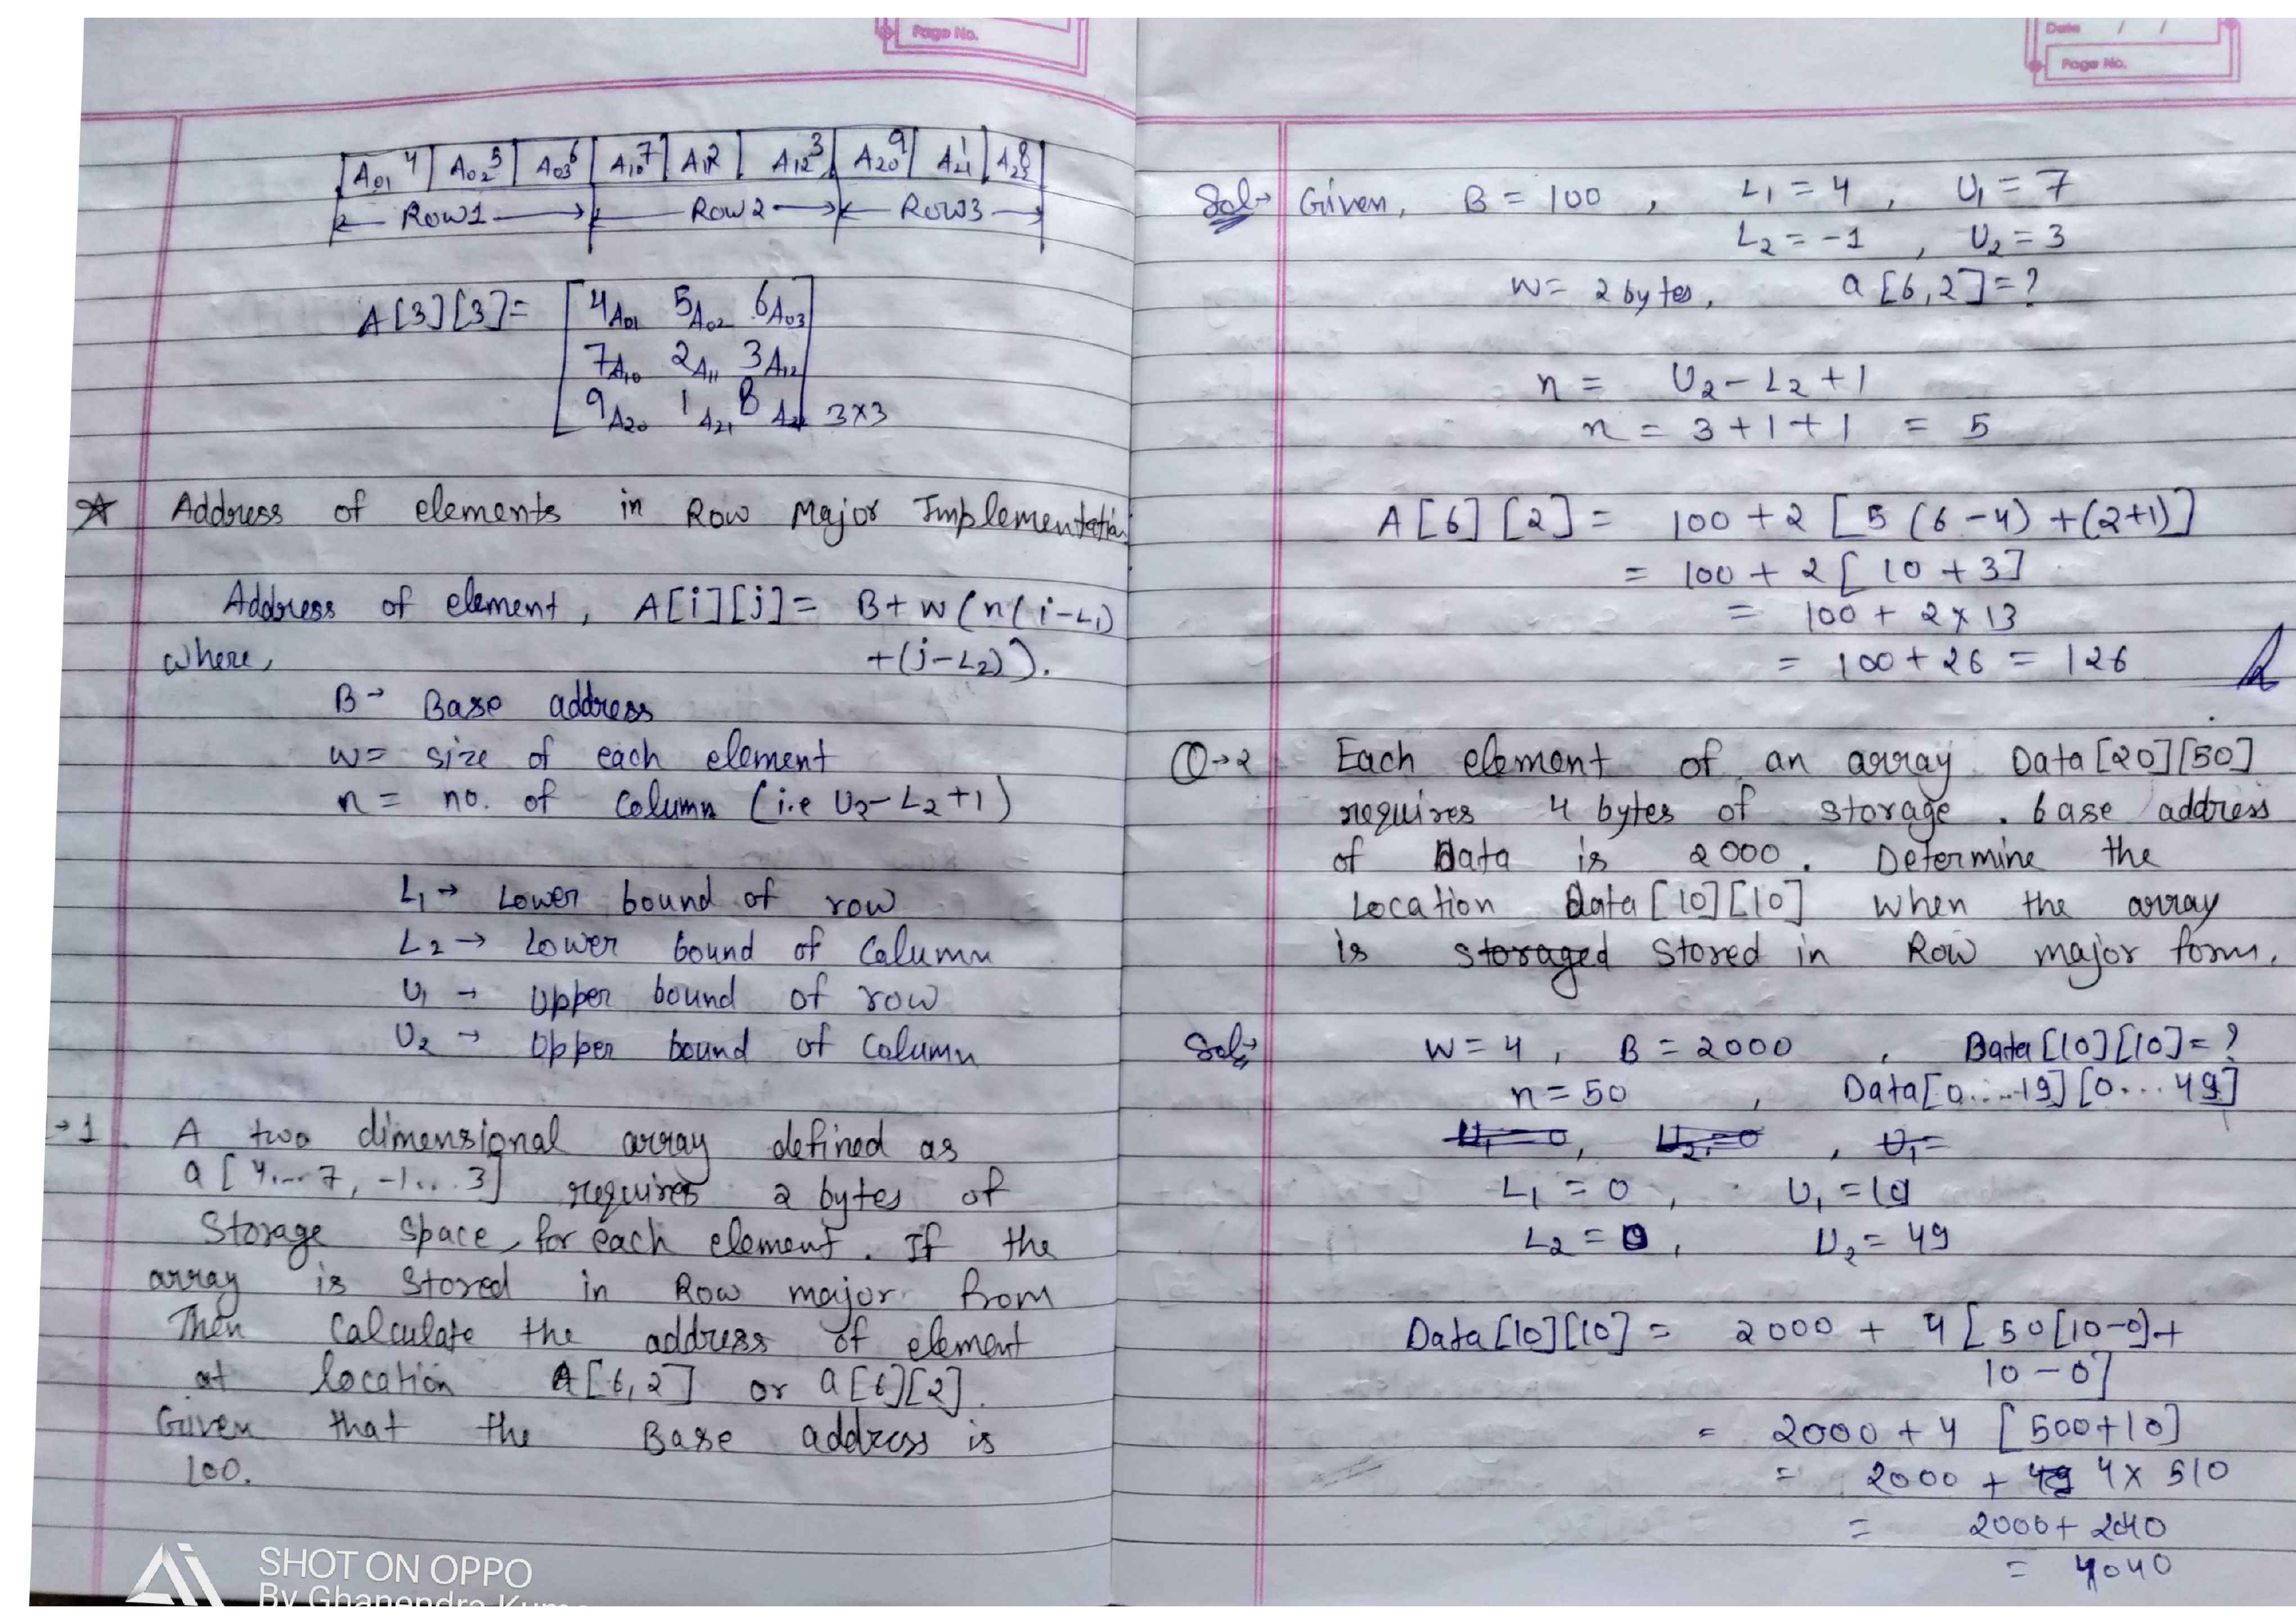 Page No.
A01 4 A02 5 A03 6 A10 7 A11 2 A12 3 A20 9 A21 1 A22 8
Row1 Row2 Row3
A[3][3] = 4A01 5A02 6A03
7A10 2A11 3A12
9A20 1A21 8A22 3×3
☆ Address of elements in Row Major Implementation
Address of element, A[i][j] = B + w(n(i-L1)
where, +(j-L2)).
B→ Base address
w = size of each element
n = no. of column (i.e U2-L2+1)
L1→ Lower bound of row
L2→ Lower bound of Column
U1→ Upper bound of row
U2→ Upper bound of Column
→1 A two dimensional array defined as
a[4...7, -1...3] requires 2 bytes of
Storage Space, for each element. If the
array is Stored in Row major from
Then Calculate the address of element
at location A[6,2] or a[6][2].
Given that the Base address is
100.
SHOT ON OPPO
By Ghanendra
Date / /
Page No.
Sol→ Given, B = 100, L1 = 4, U1 = 7
L2 = -1, U2 = 3
w = 2 bytes, a[6,2] = ?
n = U2 - L2 + 1
n = 3 + 1 + 1 = 5
A[6][2] = 100 + 2 [5(6-4) + (2+1)]
= 100 + 2 [10 + 3]
= 100 + 2 × 13
= 100 + 26 = 126
Q→2 Each element of an array Data[20][50]
requires 4 bytes of storage. base address
of Data is 2000. Determine the
Location Data[10][10] when the array
is storaged Stored in Row major form.
Sol→ W = 4, B = 2000, Data[10][10] = ?
n = 50, Data[0....19][0...49]
U1 = 0, U2 = 0, U1 =
L1 = 0, U1 = 19
L2 = 0, U2 = 49
Data[10][10] = 2000 + 4 [50[10-0] +
10 - 0]
= 2000 + 4 [500+10]
= 2000 + 4 × 510
= 2000 + 2040
= 4040